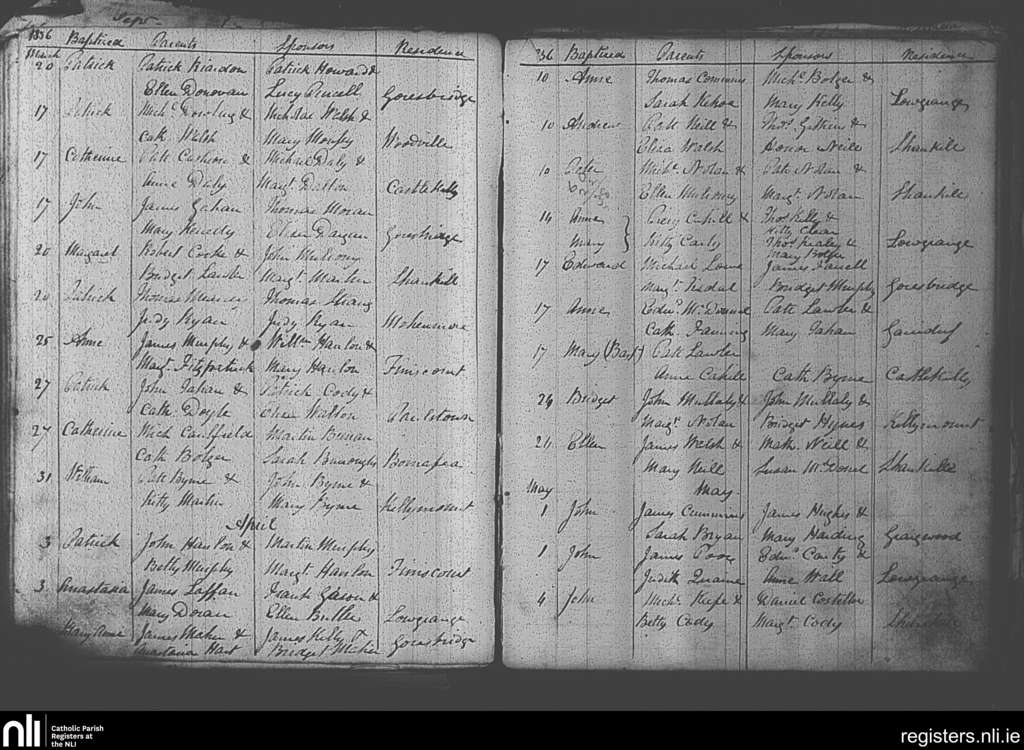 1836 Baptized Parents Sponsors Residence
March
20 Patrick Patrick Riardon Patrick Howard &
Ellen Donovan Lucy Purcell Goresbridge
17 Patrick Mich.l Dowling & Nicholas Welsh &
Cath Welsh Mary Murphy Woodville
17 Catherine Patt Cashion & Michael Daly &
Annie Daly Marg.t Dalton Castlekelly
17 John James Gahan Thomas Moran
Mary Kenedy Ellen Dargan Goresbridge
20 Margaret Robert Cooke & John Mulrony
Bridget Lawler Marg.t Martin Shankill
20 Patrick Thomas
Judy Ryan Judy Ryan
25 Anne James Murphy & Will.m Hanlon &
Marg.t Fitzpatrick Mary Hanlon Finiscourt
27 Patrick John Gahan & Patrick Cody &
Cath. Doyle Walton Paulstown
27 Catherine Mich Caulfield Martin
Cath Bolger Sarah Burroughs
31 William Patt Byrne & John Byrne &
Kitty Martin Mary Byrne Kellymount
April
3 Patrick John Hanlon & Martin Murphy
Betty Murphy Marg.t Hanlon Finiscourt
3 Anastasia James Laffan Frank Gason &
Mary Doran Ellen Butler Lowgrange
Mary Anne James Maher & James Kelly &
Anastasia Hart Bridget Maher Goresbridge
836 Baptized Parents Sponsors Residence
10 Anne Thomas Commins Mich.l Bolger &
Sarah Kehoe Mary Kelly Lowgrange
10 Andrew Patt Neill & Tho.s &
Eliza Walsh Honor Neill Shankill
10 Mich.l Nolan & Pat Nolan &
Ellen Mulrony Marg.t Nolan Shankill
14 Anne Cahill & Tho.s Kelly &
Kitty Clear
Mary Kitty Carty Tho.s Healey & Lowgrange
Mary Bolger
17 Edward Michael Lowe James Farrell
Marg.t Bridget Murphy Goresbridge
17 Anne Edw.d McDonnel Patt Lawler &
Cath. Fanning Mary Gahan
17 Mary (Bast) Patt Lawler
Anne Cahill Cath Byrne Castlekelly
24 Bridget John Mullaly & John Mullaly &
Marg.t Nolan Bridget Hynes Kellymount
24 Ellen James Walsh & Math. Neill &
Mary Neill Susan McDonel Shankill
May May
1 John James Cummins James Hughes &
Sarah Bryan Mary Harding Graigwood
1 John James Poor Edm.d Carty &
Judith Anne Wall Lowgrange
4 John Mich.l Keefe & Daniel Costillo
Betty Cody Marg.t Cody
nli
Catholic Parish
Registers at
the NLI
registers.nli.ie